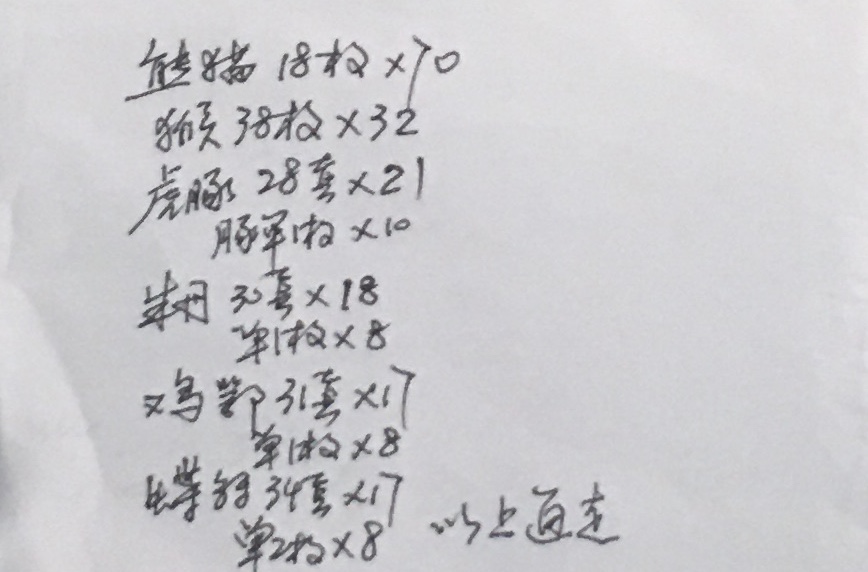 熊猫 18枚×70
猴 38枚×32
虎豚 28套×21
豚单1枚×10
朱丹 30套×18
单1枚×8
鸡鄂 31套×17
单1枚×8
蝶 34套×17
单2枚×8 以上通走